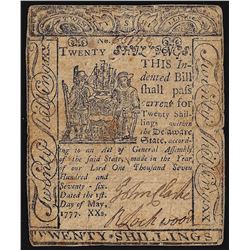 No.
TWENTY SHILLINGS.
THIS In-
dented Bill
shall pass
current for
Twenty Shillings
within the
Delaware
State, accord-
ing to an Act of General Assembly
of the said State, made in the Year
of our Lord One Thousand Seven
Hundred and
Seventy-six.
Dated the 1st.
Day of May,
1777. XXs.
TWENTY-SHILLINGS
Twenty Shillings
Twenty Shillings